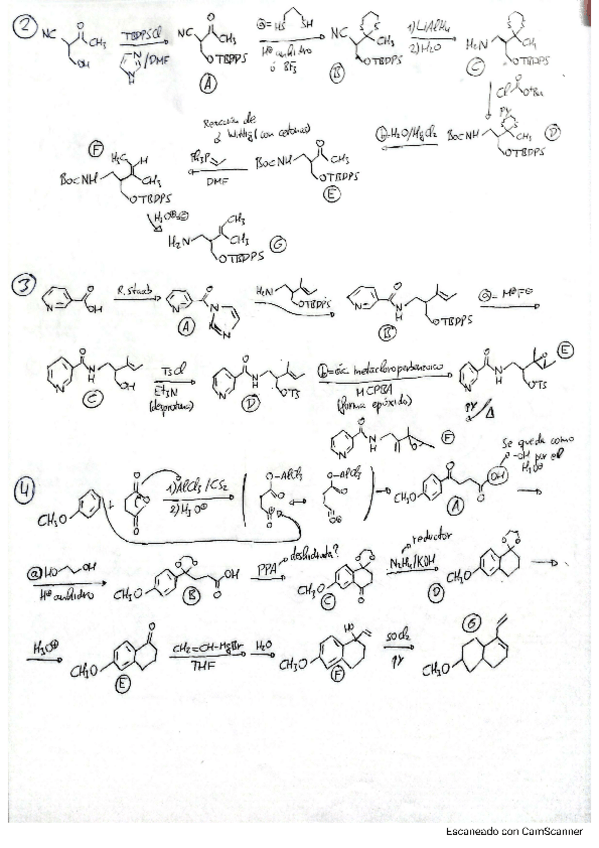 ② NC O CH3 OH TBDPSCl /DMF NC O CH3 OTBDPS Ⓐ ⓐ= HS SH H⊕ anhidro ó BF3 NC S S CH3 OTBDPS Ⓑ 1) LiAlH4 2) H2O H2N S S CH3 OTBDPS Ⓒ
Cl O OtBu
PY
Ⓕ H3C H BocNH CH3 OTBDPS Ph3P DMF Reacción de Wittig (con cetonas) BocNH O CH3 OTBDPS Ⓔ ⓑ= H2O/HgCl2 BocNH S S CH3 OTBDPS Ⓓ
H2N CH3 CH3 OTBDPS Ⓖ
③ N O OH R. Staab N O N N Ⓐ H2N OTBDPS N O N H OTBDPS Ⓑ ⓐ= F⊖
N O N H OH Ⓒ TsCl Et3N (desprotona) N O N H OTs Ⓓ ⓑ= ác. metacloroperbenzoico MCPBA (forma epóxido) N O N H O OTs Ⓔ
PY / Δ
N O N H O Ⓕ
④ CH3O + O O O 1) AlCl3/CS2 2) H3O⊕ O-AlCl3 O O-AlCl3 O CH3O O O OH Ⓐ Se queda como -OH por el H3O⊕
ⓐ HO OH H⊕ anhidro CH3O O O OH O Ⓑ PPA deshidrata? CH3O O O O Ⓒ reductor N2H4/KOH CH3O O O Ⓓ
H3O⊕ CH3O O Ⓔ CH2=CH-MgBr THF H2O CH3O HO Ⓕ SOCl2 PY CH3O Ⓖ
Escaneado con CamScanner